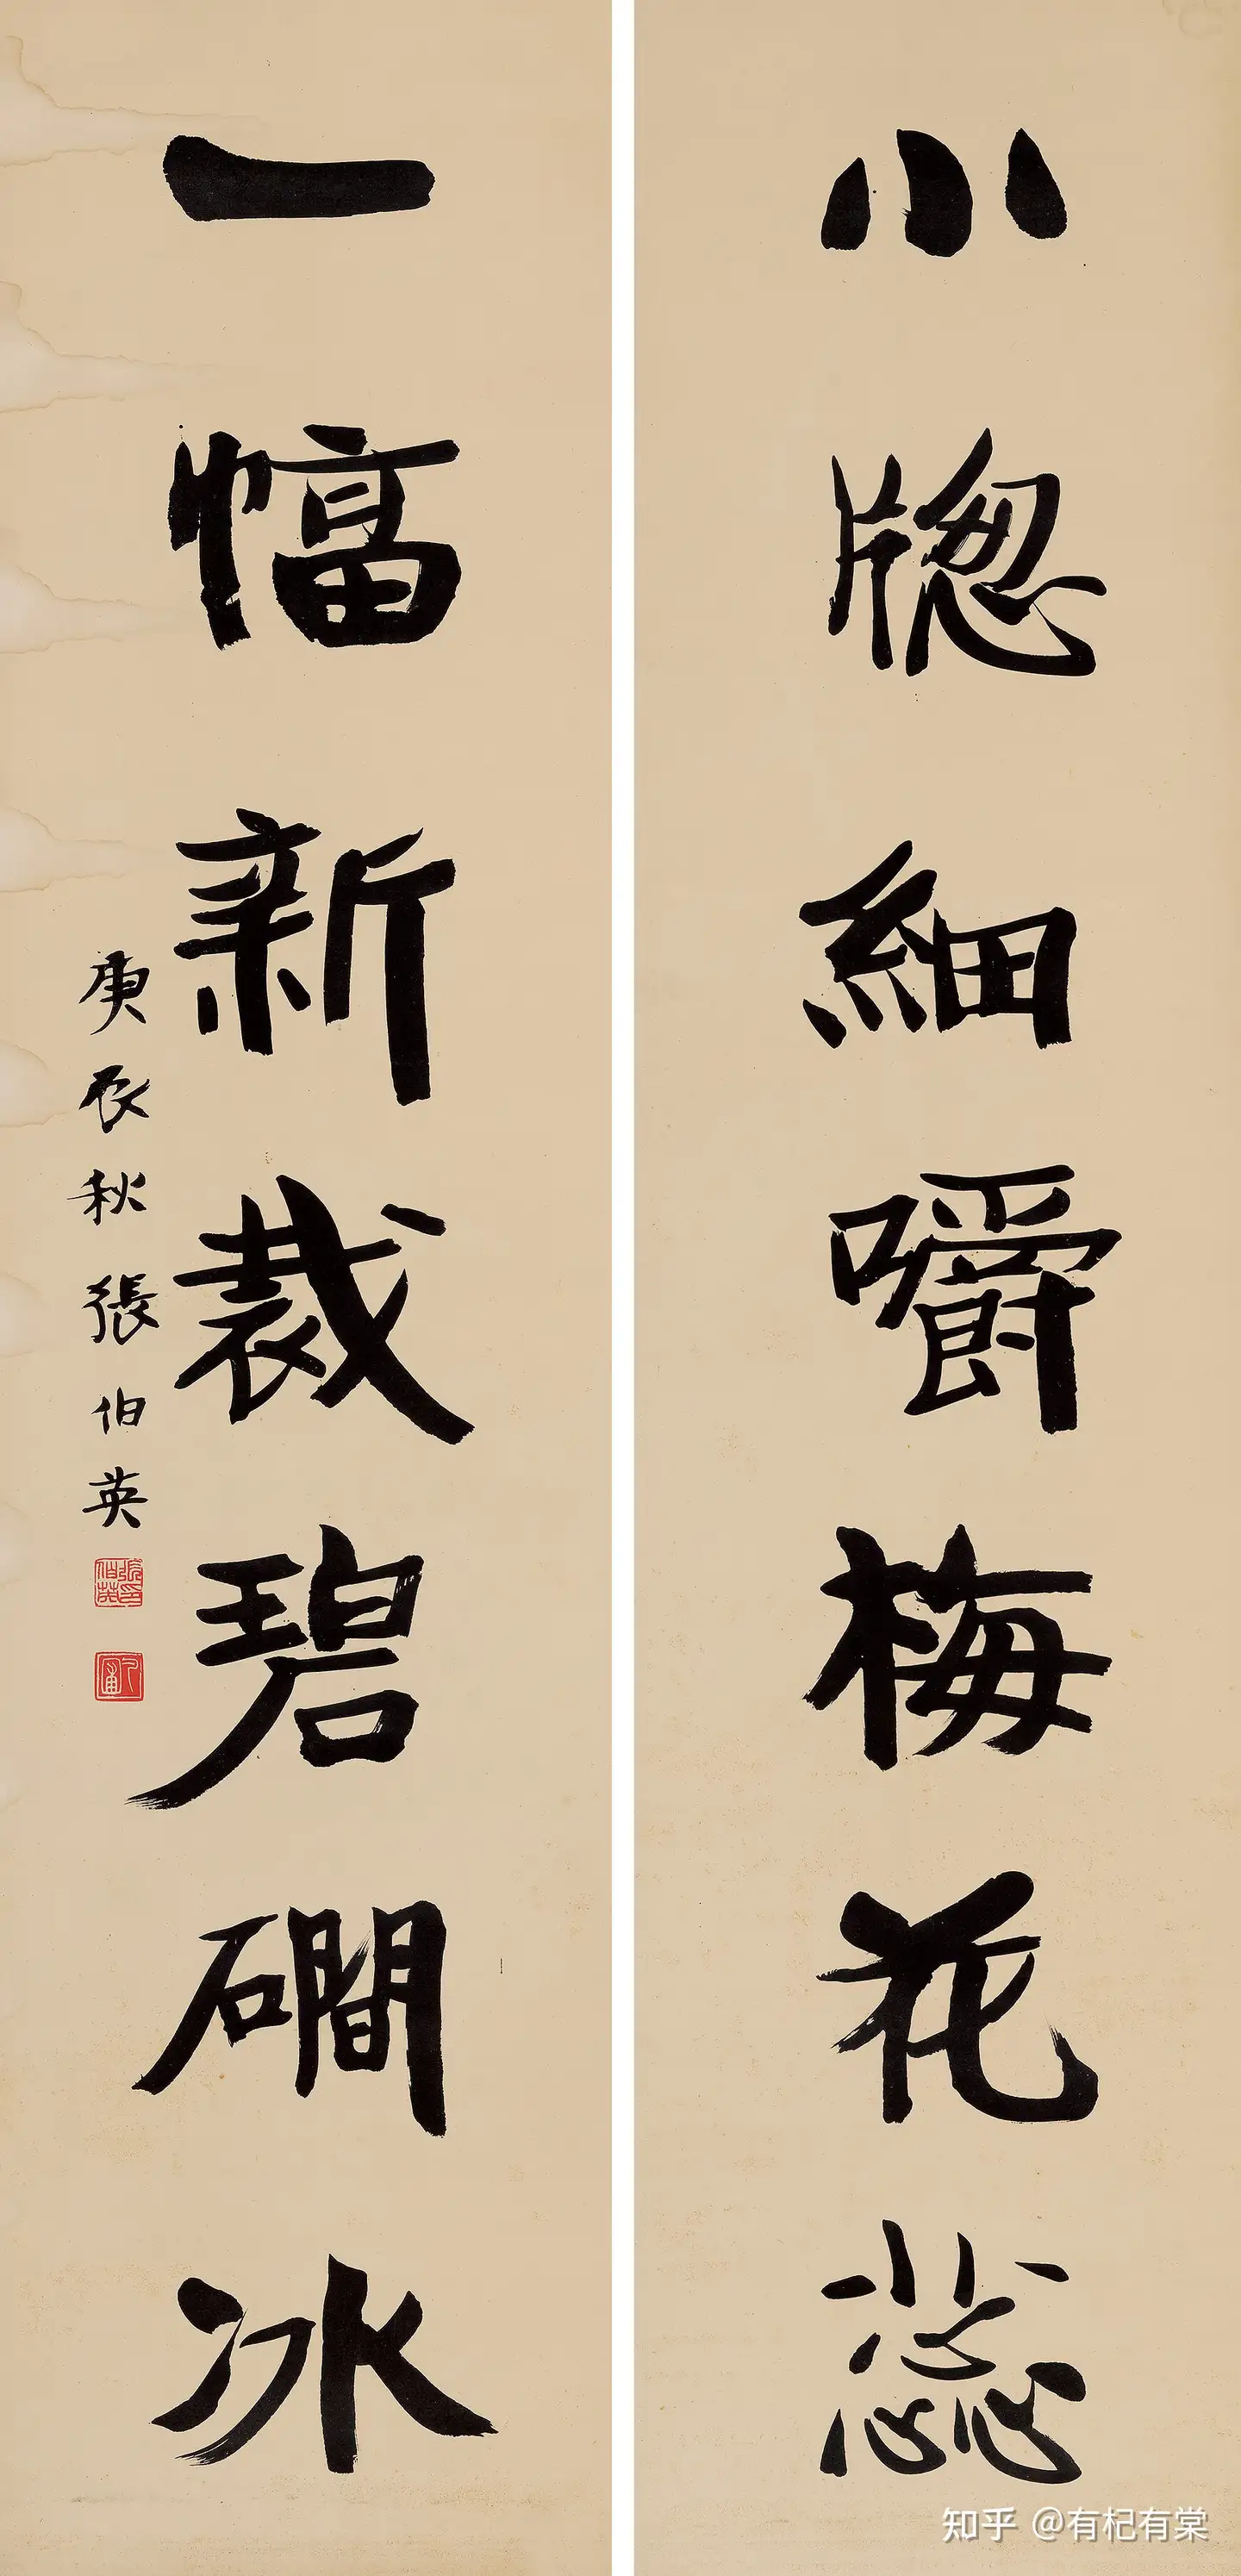 小牎細嚼梅花蕊
一幅新裁碧磵冰
庚辰秋張伯英
張伯英印
知乎 @有杞有棠